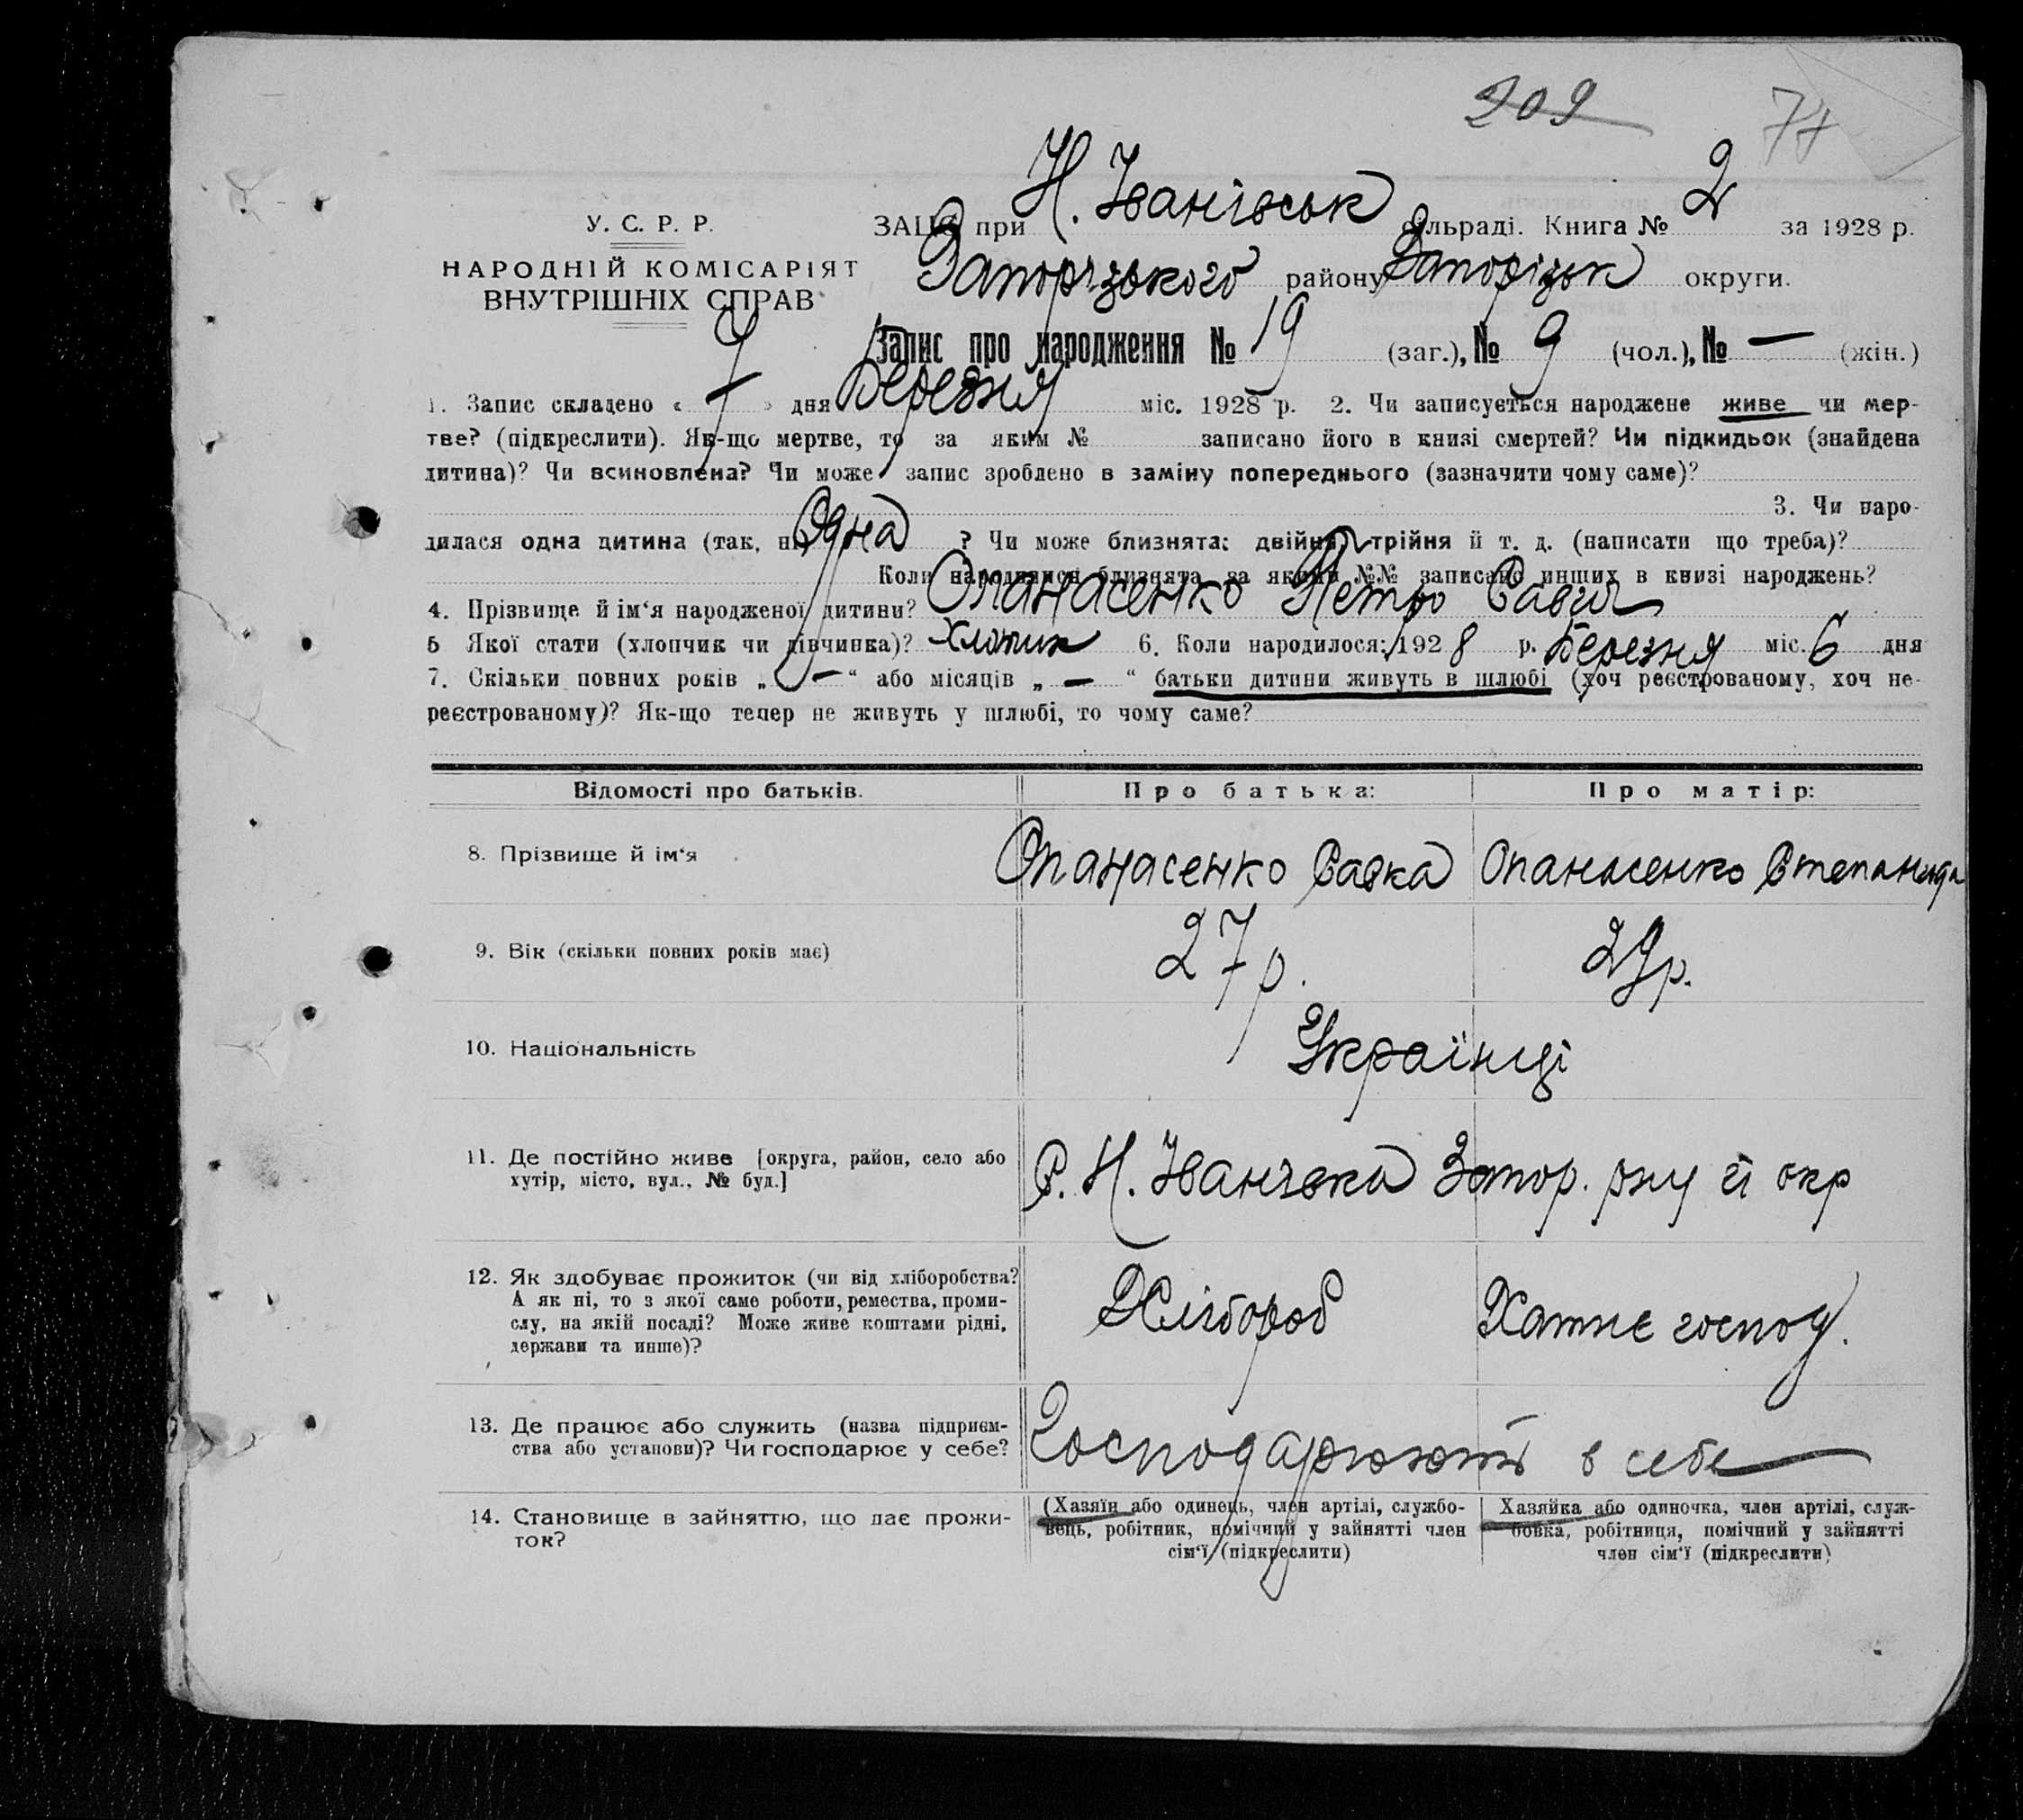 209 77
У. С. Р. Р.
НАРОДНІЙ КОМІСАРІЯТ
ВНУТРІШНІХ СПРАВ
ЗАЦС при Н. Іванівськ сільраді. Книга № 2 за 1928 р.
Запорізького району Запорізьк округи.
Запис про народження № 19 (заг.), № 9 (чол.), № — (жін.)
1. Запис складено « 7 » дня Березня міс. 1928 р. 2. Чи записується народжене живе чи мер-
тве? (підкреслити). Як-що мертве, то за яким № записано його в книзі смертей? Чи підкидьок (знайдена
дитина)? Чи всиновлена? Чи може запис зроблено в заміну попереднього (зазначити чому саме)?
3. Чи наро-
дилася одна дитина (так, ні) Одна ? Чи може близнята: двійня, трійня й т. д. (написати що треба)?
Коли народилися близнята, за якими №№ записано инших в книзі народжень?
4. Прізвище й ім‘я народженої дитини? Опанасенко Петро Савич
5 Якої стати (хлопчик чи дівчинка)? Хлопчик 6. Коли народилося: 1928 р. Березня міс. 6 дня
7. Скільки повних років „ — “ або місяців „ — “ батьки дитини живуть в шлюбі (хоч реєстрованому, хоч не-
реєстрованому)? Як-що тепер не живуть у шлюбі, то чому саме?
Відомості про батьків. Про батька: Про матір:
8. Прізвище й ім‘я Опанасенко Савка Опанасенко Степанида
9. Вік (скільки повних років має) 27 р. 29 р.
10. Національність Українці
11. Де постійно живе [округа, район, село або
хутір, місто, вул., № буд.] С. Н. Іванівка Запор. рну й окр
12. Як здобуває прожиток (чи від хліборобства?
А як ні, то з якої саме роботи, ремества, проми-
слу, на якій посаді? Може живе коштами рідні,
держави та инше)? Хлібороб Хатнє господ.
13. Де працює або служить (назва підприєм-
ства або установи)? Чи господарює у себе? Господарюють в себе
14. Становище в зайняттю, що дає прожи-
ток?
(Хазяїн або одинець, член артілі, службо-
вець, робітник, помічний у зайнятті член
сім‘ї (підкреслити)
Хазяйка або одиночка, член артілі, служ-
бовка, робітниця, помічний у зайнятті
член сім‘ї (підкреслити)